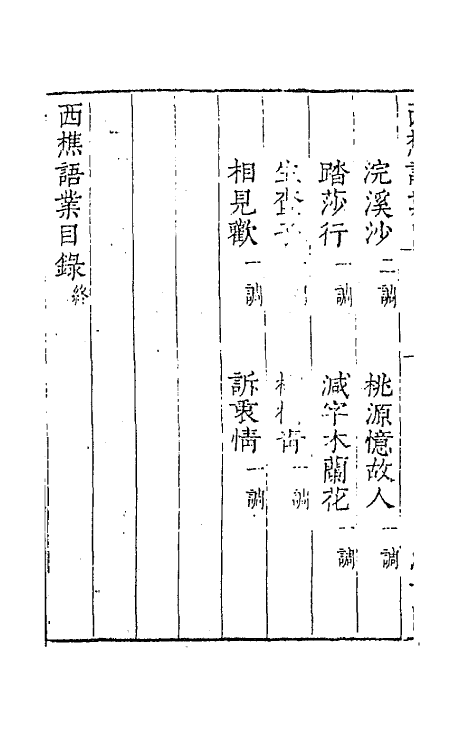 浣溪沙二調 桃源憶故人一調
踏莎行一調 減字木蘭花一調
生查子
相見歡一調 訴衷情一調
西樵語業目錄終